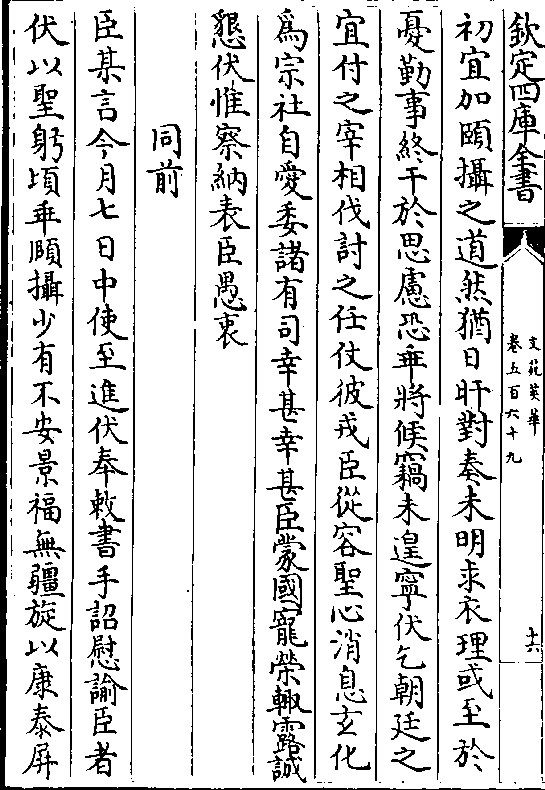 欽定四庫全書
文苑英華
卷五百六十九
十六
初宜加頤攝之道然猶日旰對奏未明求衣理或至於
憂勤事終干於思慮恐乖將候竊未遑寧伏乞朝廷之
宜付之宰相伐討之任仗彼戎臣從容聖心消息玄化
為宗社自愛委諸有司幸甚幸甚臣蒙國寵榮輙露誠
懇伏惟察納表臣愚衷
同前
臣某言今月七日中使至進伏奉敕書手詔慰諭臣者
伏以聖躬頃乖頤攝少有不安景福無疆旋以康泰屏